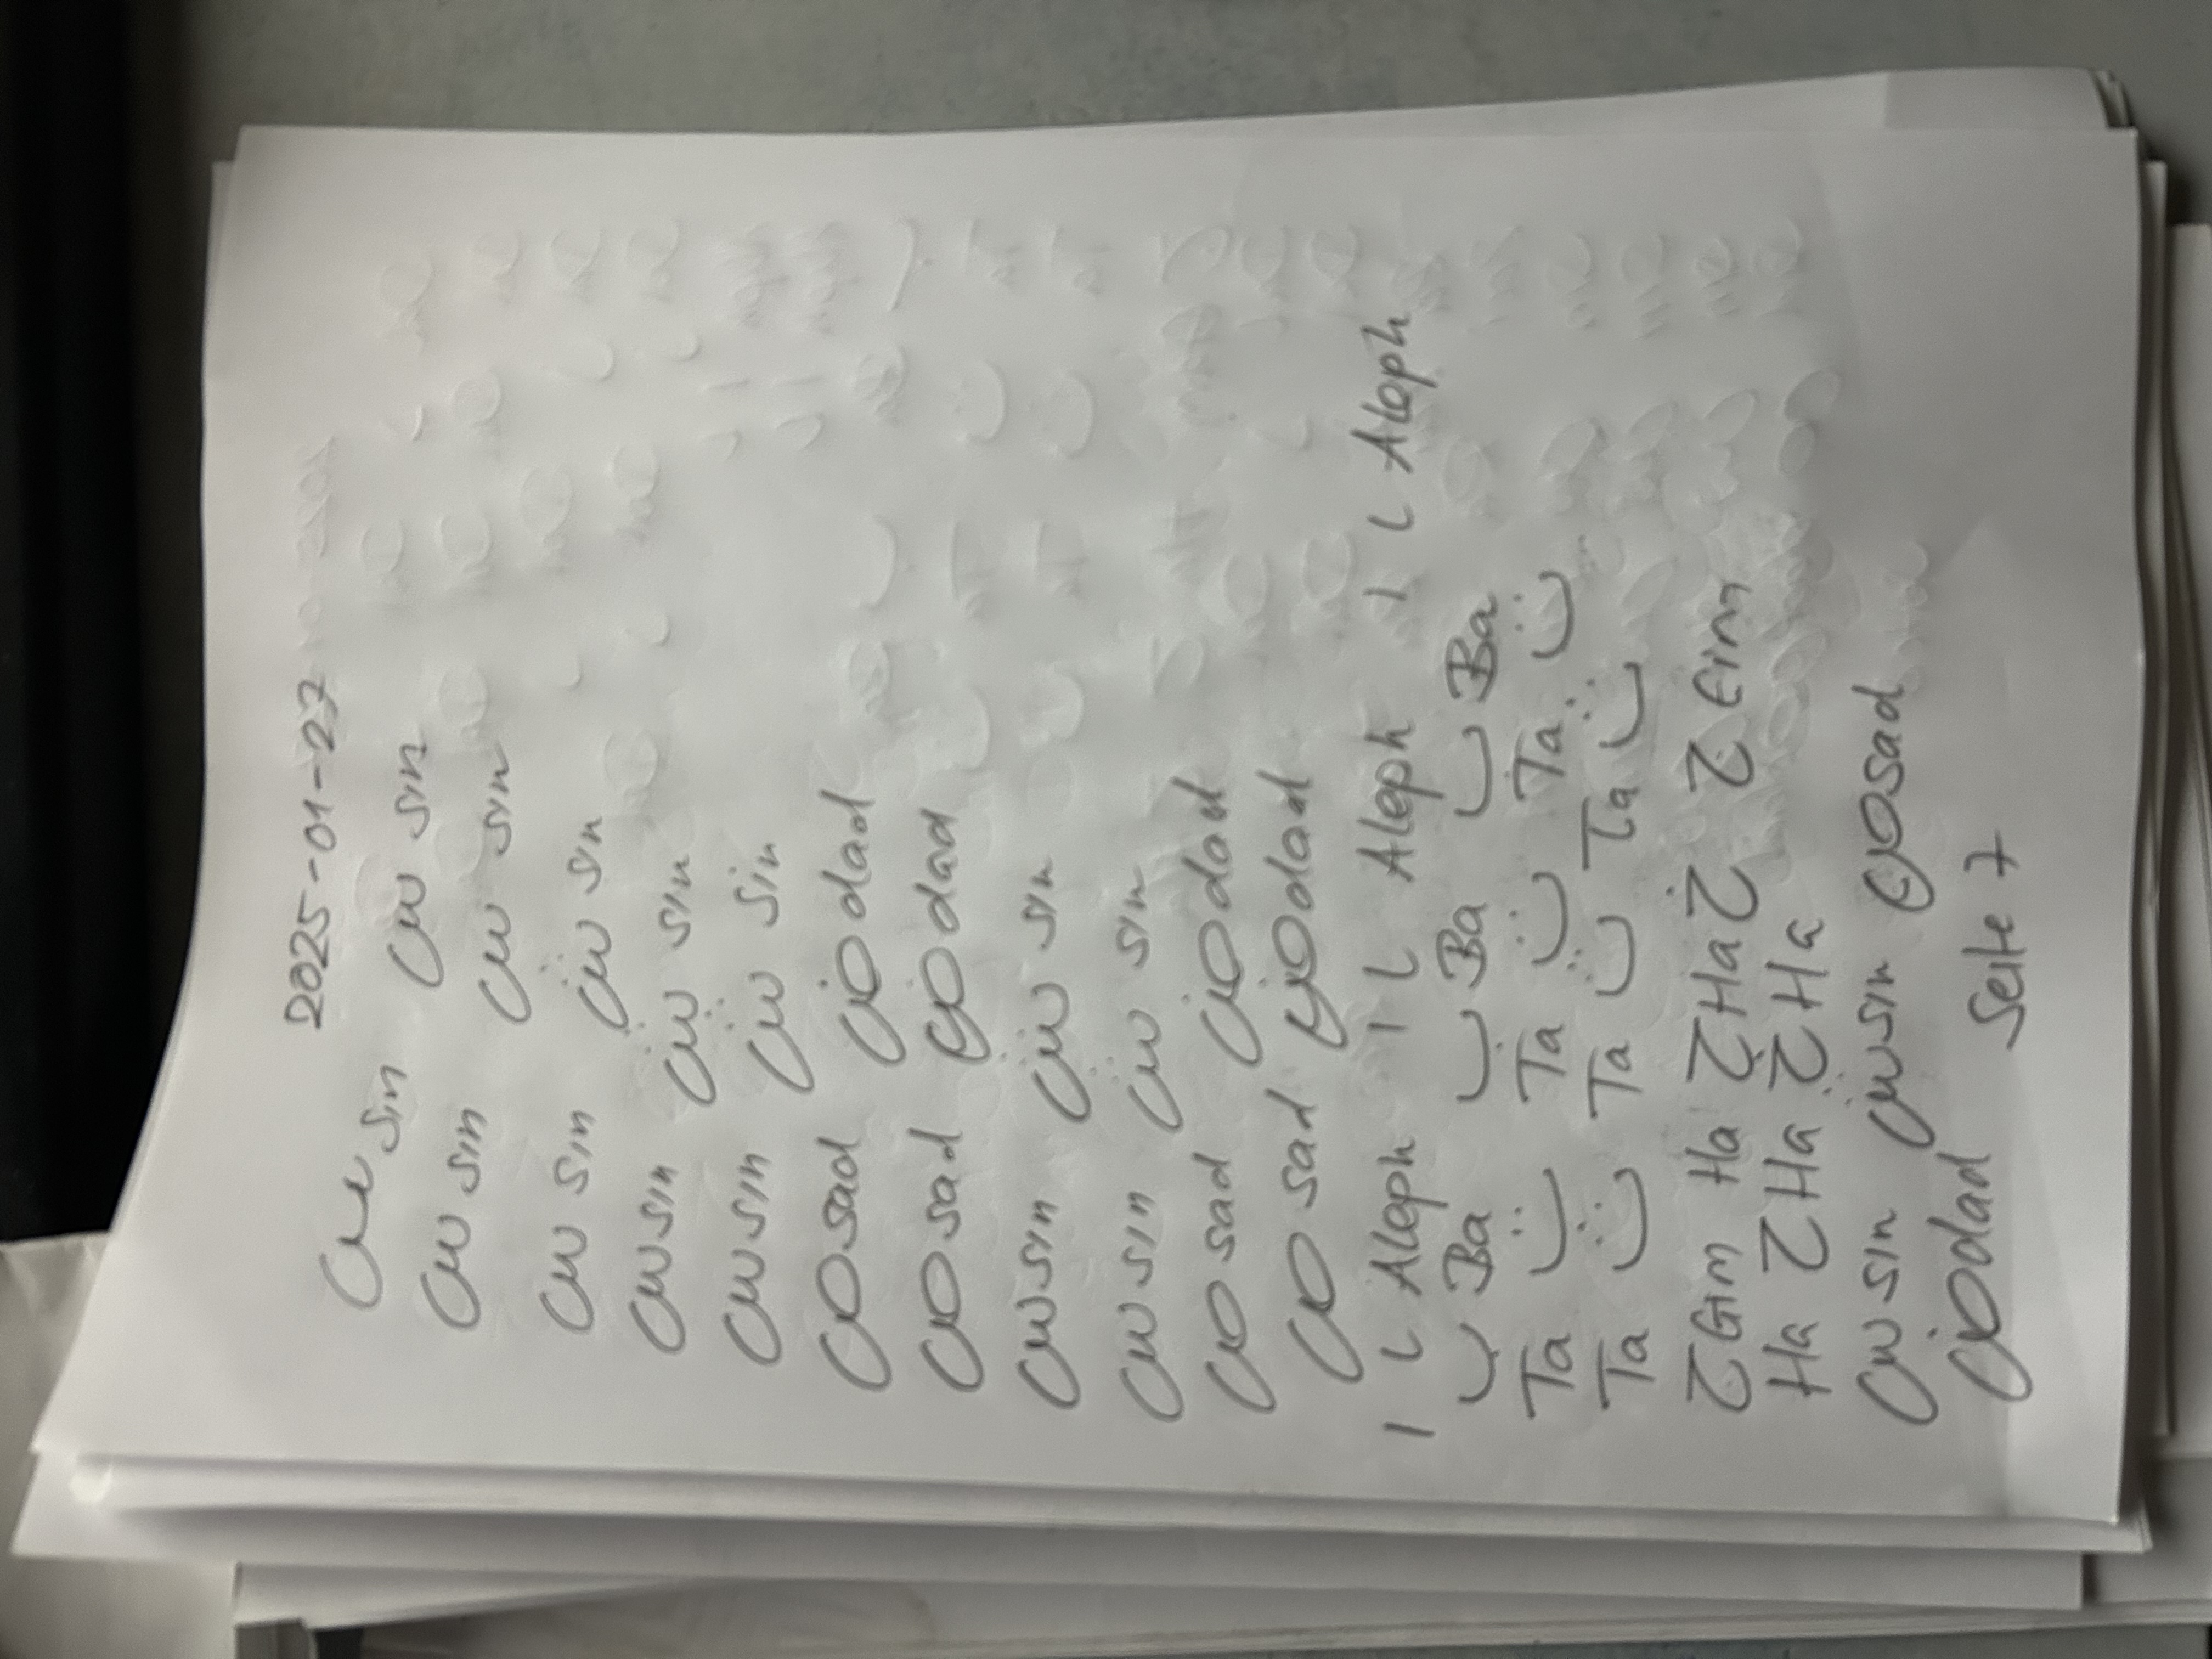 2025-01-27
س sin س sin
س sin س sin
س sin ش sin
س sin ش sin
س sin ش sin
ص sad ض dad
ص sad ض dad
س sin ش sin
س sin ش sin
ص sad ض dad
ص sad ض dad
ا ل Aleph ا ل Aleph ا ل Aleph
ب Ba ب Ba ب Ba
Ta ت Ta ت Ta ت
Ta ث Ta ث Ta ث
ح Gim Ha ج Ha خ ج Gim
Ha ح Ha خ Ha
س sin ش sin ص sad
ض dad Seite 7